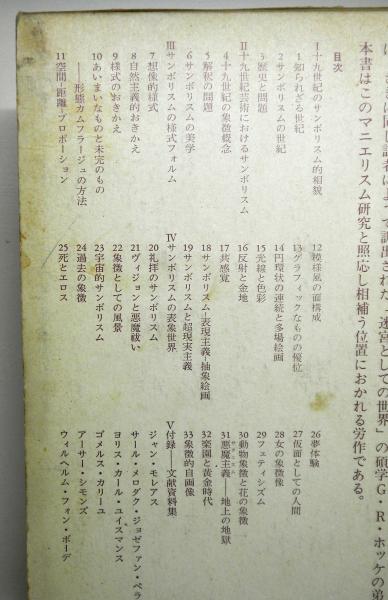 は、さきに同じ訳者によって訳出された『迷宮としての世界』の碩学G・R・ホッケの弟
本書はこのマニエリスム研究と照応し相補う位置におかれる労作である。
目次
Ⅰ十九世紀のサンボリスム的相貌
1知られざる世紀
2サンボリスムの世紀
3歴史と問題
Ⅱ十九世紀芸術におけるサンボリスム
4十九世紀の象徴概念
5解釈の問題
6サンボリスムの美学
Ⅲサンボリスムの様式フォルム
7想像的様式
8自然主義的おきかえ
9様式のおきかえ
10あいまいなものと未完のもの
――形態カムフラージュの方法
11空間-距離-プロポーション
12模様風の面構成
13グラフィックなものの優位
14円環状の連続と多場絵画
15光線と色彩
16反射と金地
17共感覚
18サンボリスム-表現主義-抽象絵画
19サンボリスムと超現実主義
Ⅳサンボリスムの表象世界
20礼拝のサンボリスム
21ヴィジョンと悪魔祓い
22象徴としての風景
23宇宙的サンボリスム
24過去の象徴
25死とエロス
26夢体験
27仮面としての人間
28女の象徴像
29フェティシズム
30動物象徴と花の象徴
31悪魔主義 地上の地獄
32楽園と黄金時代
33象徴的自画像
Ⅴ付録――文献資料集
ジャン・モレアス
サール・メロダク・ジョゼファン・ペラ
ヨリス・カール・ユイスマンス
ゴメルス・カリーユ
アーサー・シモンズ
ウィルヘルム・フォン・ボーデ